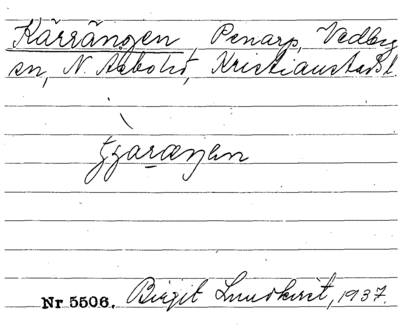 Kärrängen, Penarp, Vedby
sn, N. Åsbo hd, Kristianstads l.
Nr 5506. Birgit Lundkvist, 1937.